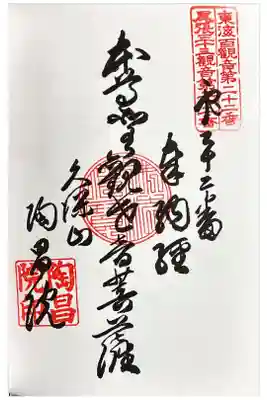 東海百観音第二十二番
尾張三十三観音第
二十二番
奉納経
本尊聖観世音菩薩
久保山
陶昌院
陶昌院印